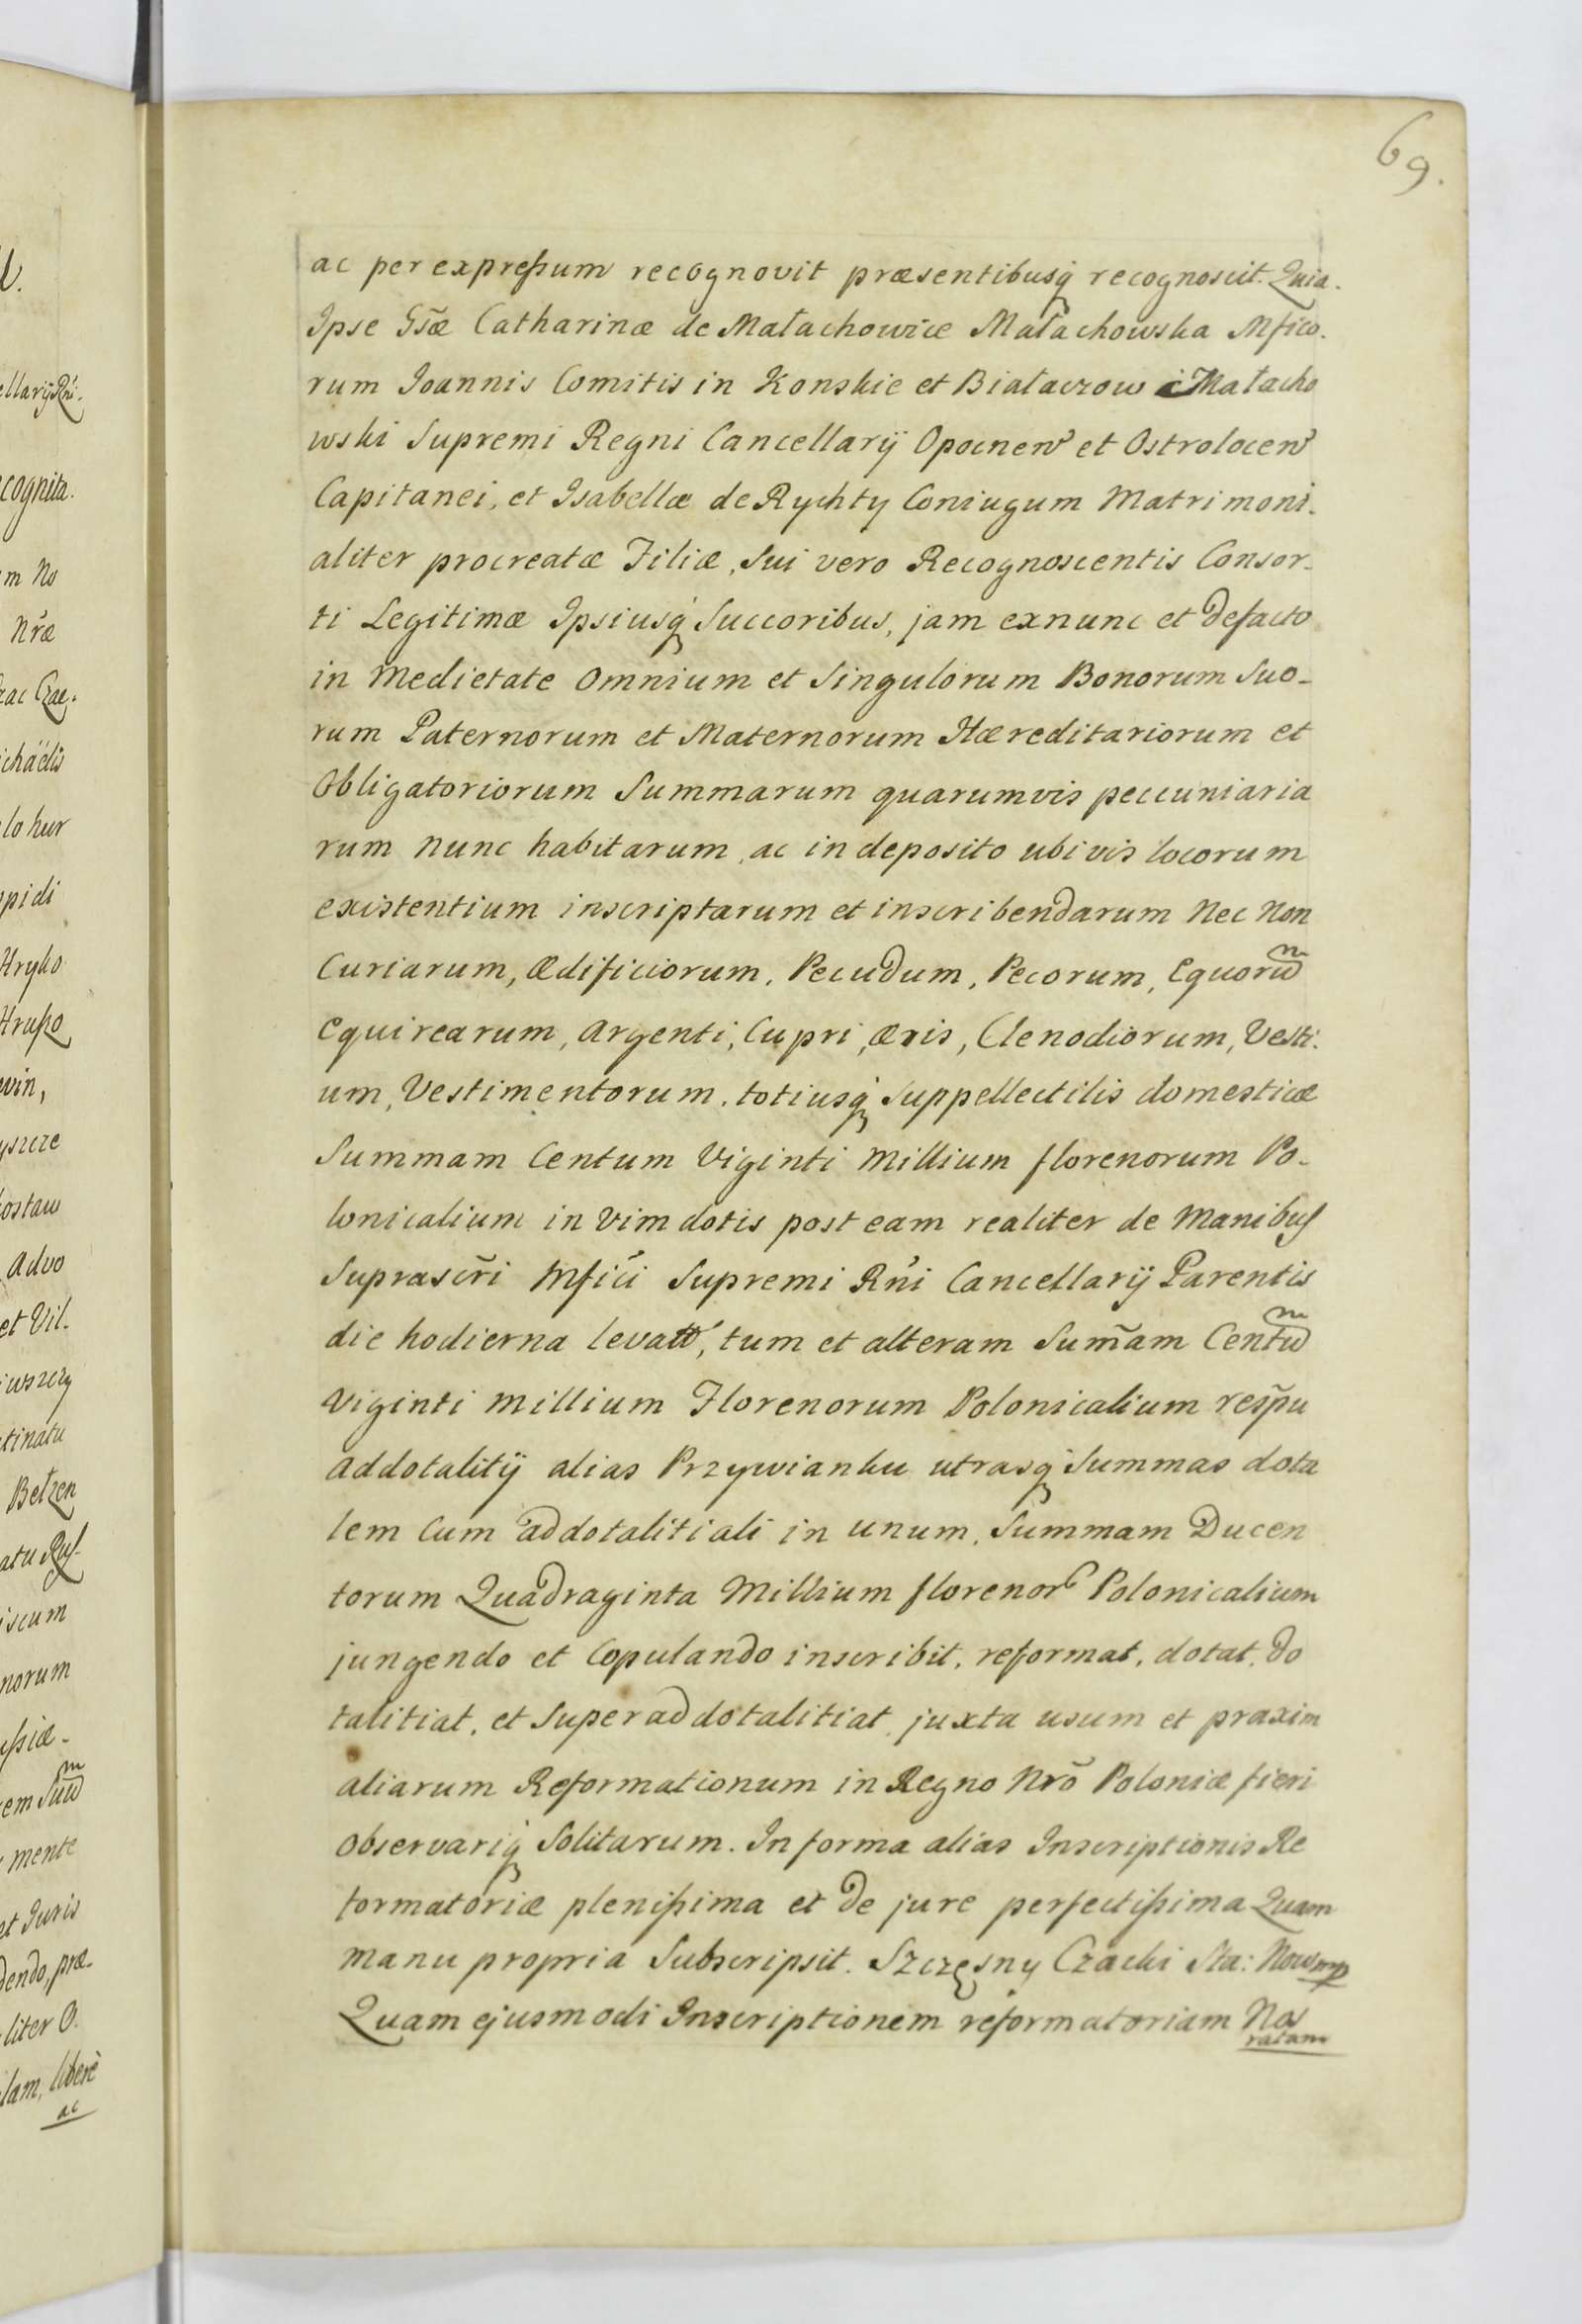 69.
ac per expressum recognovit præsentibusq́ recognoscit. Quia.
Ipse Gsæ̃ Catharinæ de Małachowice Małachowska Mfico.
rum Joannis Comitis in Konskie et Białaczow Małacho
wski Supremi Regni Cancellarij Opocnen et Ostrolocen
Capitanei, et Isabellæ de Rychty Coniugum Matrimoni.
aliter procreatæ Filiæ, Sui vero Recognoscentis Consor-
ti Legitimæ Ipsiusq́ Succoribus, jam exnunc et defacto
in Medietate Omnium et Singulorum Bonorum Suo-
rum Paternorum et Maternorum Hæreditariorum et
Obligatoriorum Summarum quarumvis peccuniaria
rum nunc habitarum, ac in deposito ubivis locorum
existentium inscriptarum et inscribendarum Nec Non
Curiarum, Ædificiorum, Pecudum, Pecorum, Equorum
Equirearum, Argenti, Cupri, Æris, Clenodiorum, Vesti.
um, Vestimentorum, totiusq́ Suppellectilis domesticæ
Summam Centum Viginti Millium florenorum Po-
lonicalium in vim dotis post eam realiter de Manibus
Suprascr̃i Mfici Supremi Rńi Cancellarij Parentis
die hodierna levato, tum et alteram Sum̃am Centum
Viginti Millium Florenorum Polonicalium resp̃u
addotalitij alias Przywianku utrasq́ Summas dota
lem Cum addotalitiali in unum, Summam Ducen
torum Quadraginta Millium florenor Polonicalium
jungendo et Copulando inscribit, reformat, dotat, do
talitiat, et Superaddotalitiat, juxta usum et praxim
aliarum Reformationum in Regno Nrõ Poloniæ fieri
Observariq́ Solitarum. In forma alias Inscriptionis Re
formatoriæ plenissima et de jure perfectissima Quam
manu propria Subscripsit. Szczęsny Czacki Sta: Now mp
Quam ejusmodi Inscriptionem reformatoriam No
ratam
cognita.
m No
Nræ̃
lo hur
pidi
win,
Advo
et Vil.
Bełzen
norum
mente
et Juris
dendo, præ-
liter O.
lam, liberè
ac